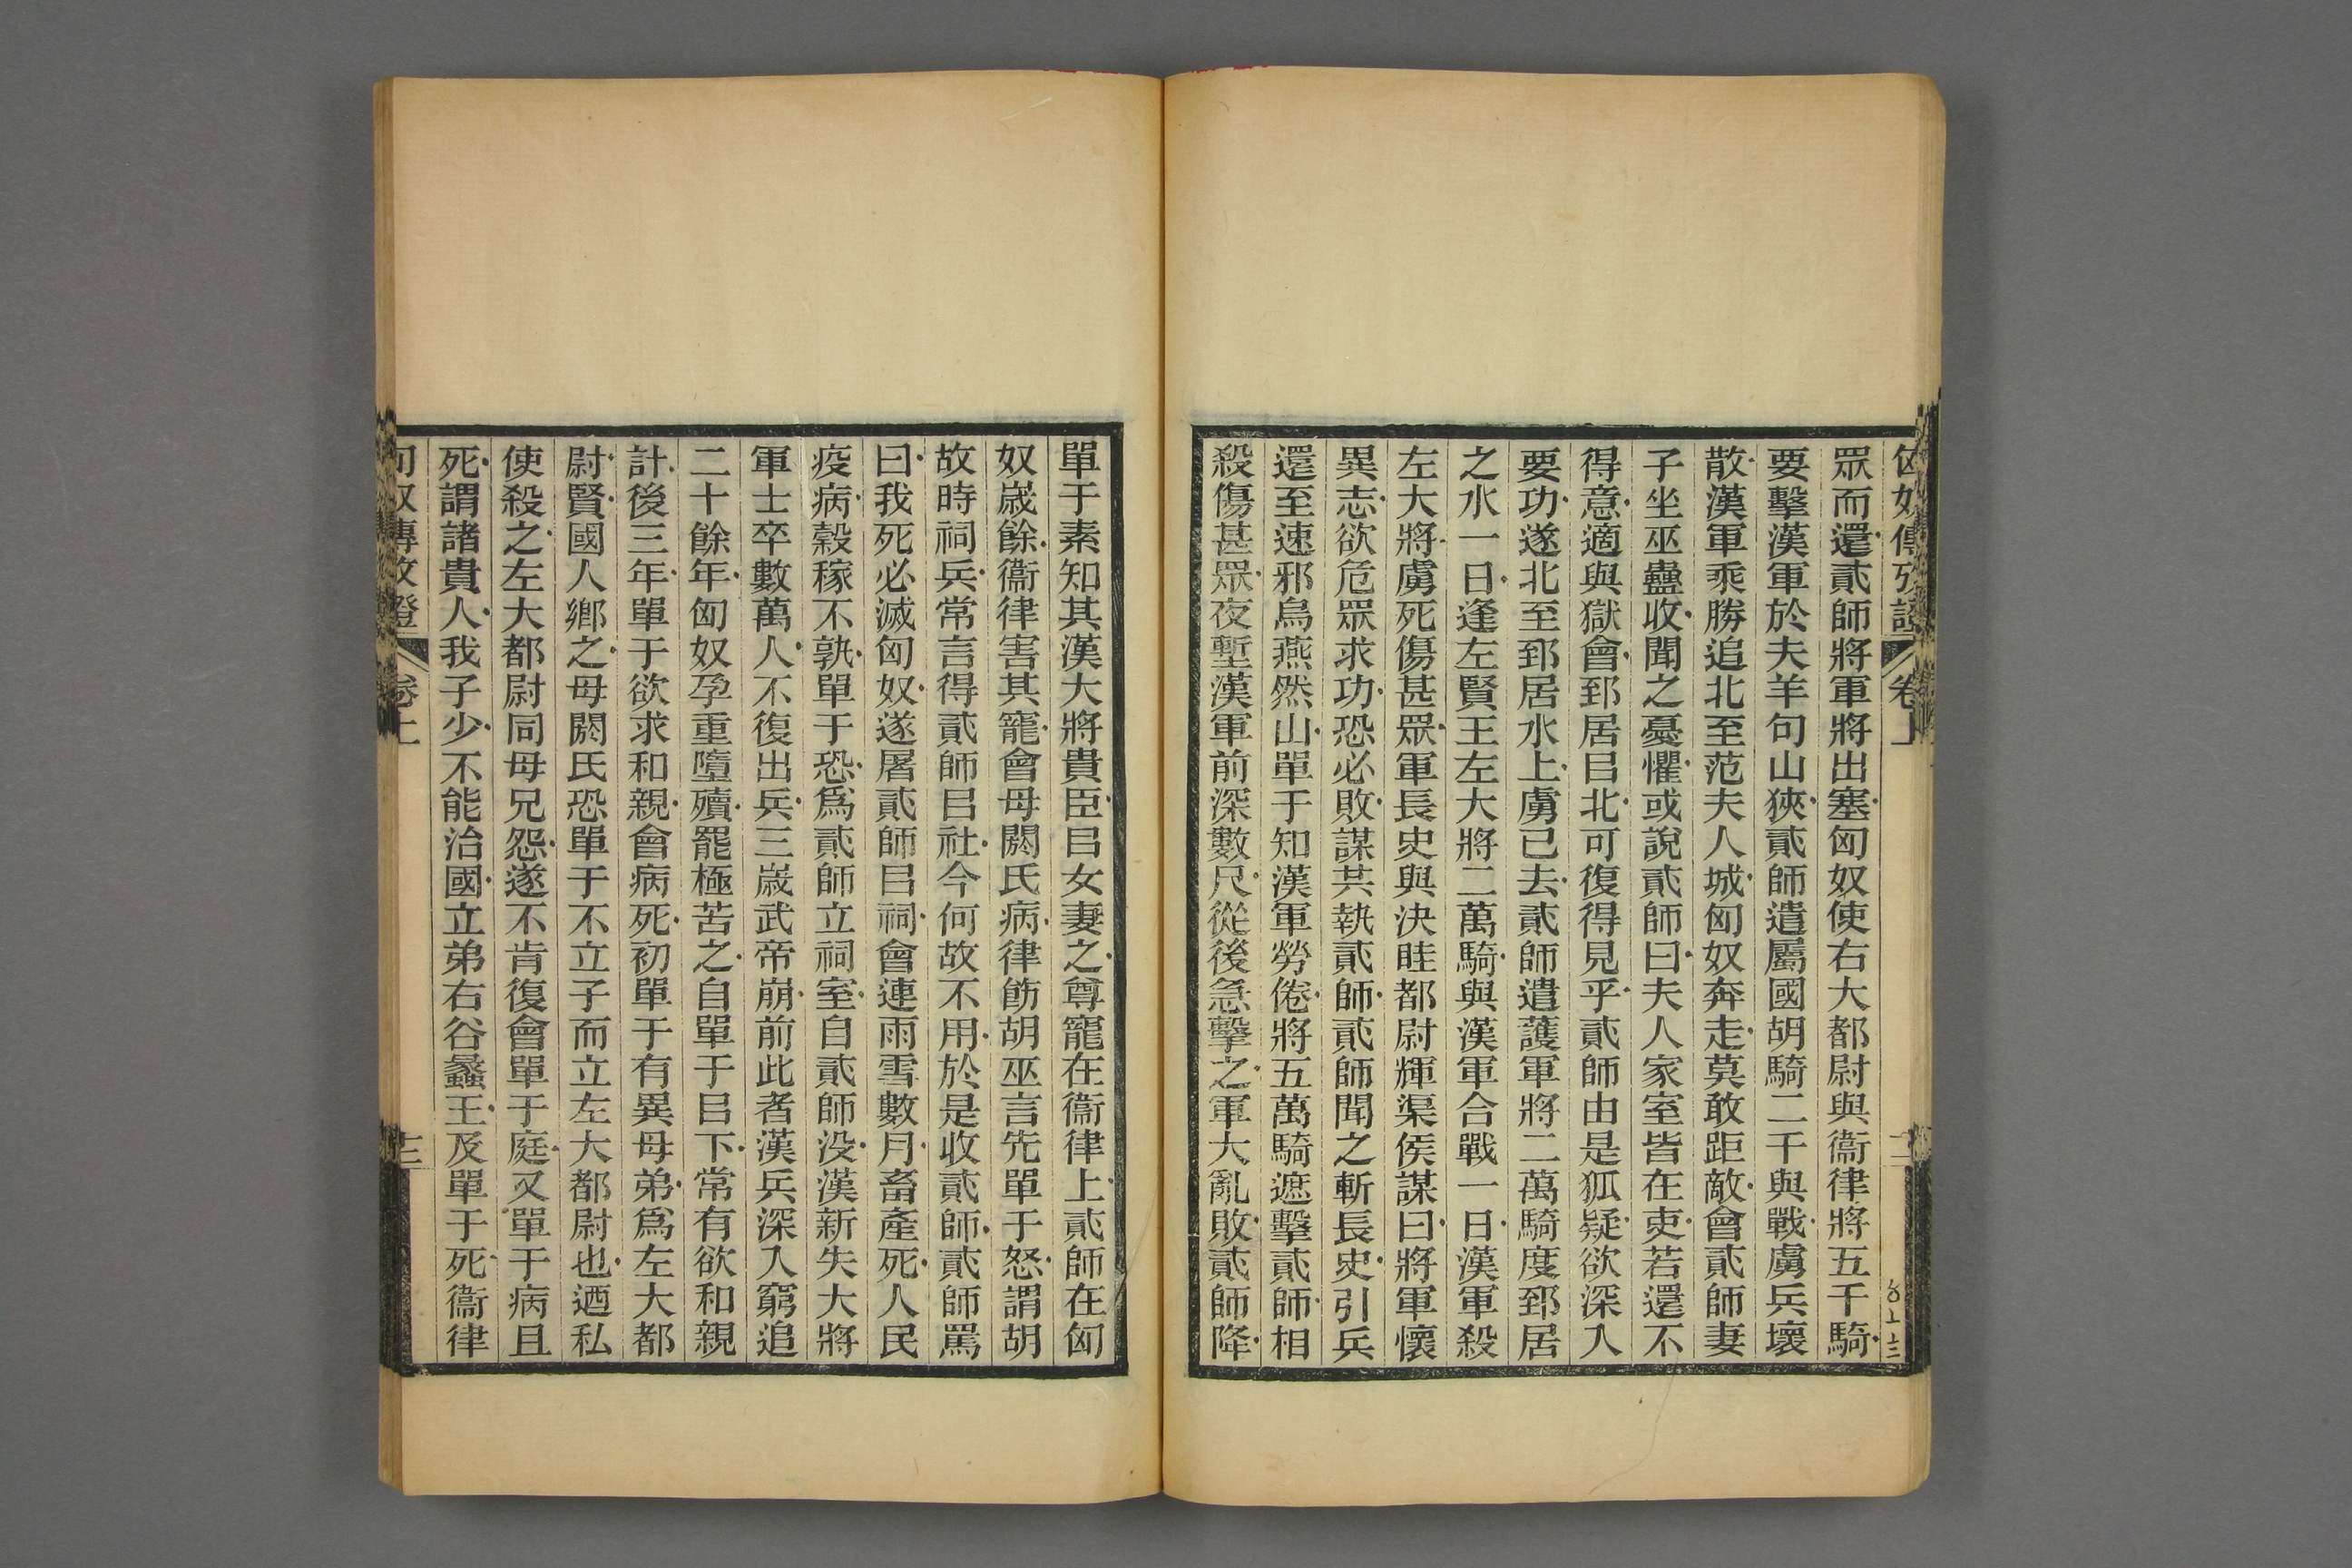 匈奴傳攷證 卷上
眾而還貳師將軍將出塞匈奴使右大都尉與衞律將五千騎
要擊漢軍於夫羊句山狹貳師遣屬國胡騎二千與戰虜兵壞
散漢軍乘勝追北至范夫人城匈奴奔走莫敢距敵會貳師妻
子坐巫蠱收聞之憂懼或說貳師曰夫人家室皆在吏若還不
得意適與獄會郅居㠯北可復得見乎貳師由是狐疑欲深入
要功遂北至郅居水上虜已去貳師遣護軍將二萬騎度郅居
之水一日逢左賢王左大將二萬騎與漢軍合戰一日漢軍殺
左大將虜死傷甚眾軍長史與決眭都尉輝渠侯謀曰將軍懷
異志欲危眾求功恐必敗謀共執貳師貳師聞之斬長史引兵
還至速邪烏燕然山單于知漢軍勞倦將五萬騎遮擊貳師相
殺傷甚眾夜塹漢軍前深數尺從後急擊之軍大亂敗貳師降
單于素知其漢大將貴臣㠯女妻之尊寵在衞律上貳師在匈
奴嵗餘衞律害其寵會母閼氏病律飭胡巫言先單于怒謂胡
故時祠兵常言得貳師㠯社今何故不用於是收貳師貳師罵
曰我死必滅匈奴遂屠貳師㠯祠會連雨雪數月畜產死人民
疫病穀稼不孰單于恐爲貳師立祠室自貳師没漢新失大將
軍士卒數萬人不復出兵三嵗武帝崩前此者漢兵深入窮追
二十餘年匈奴孕重墮殰罷極苦之自單于㠯下常有欲和親
計後三年單于欲求和親會病死初單于有異母弟爲左大都
尉賢國人鄉之母閼氏恐單于不立子而立左大都尉也迺私
使殺之左大都尉同母兄怨遂不肯復會單于庭又單于病且
死謂諸貴人我子少不能治國立弟右谷蠡王及單于死衞律
匈奴傳攷證 卷上 十二